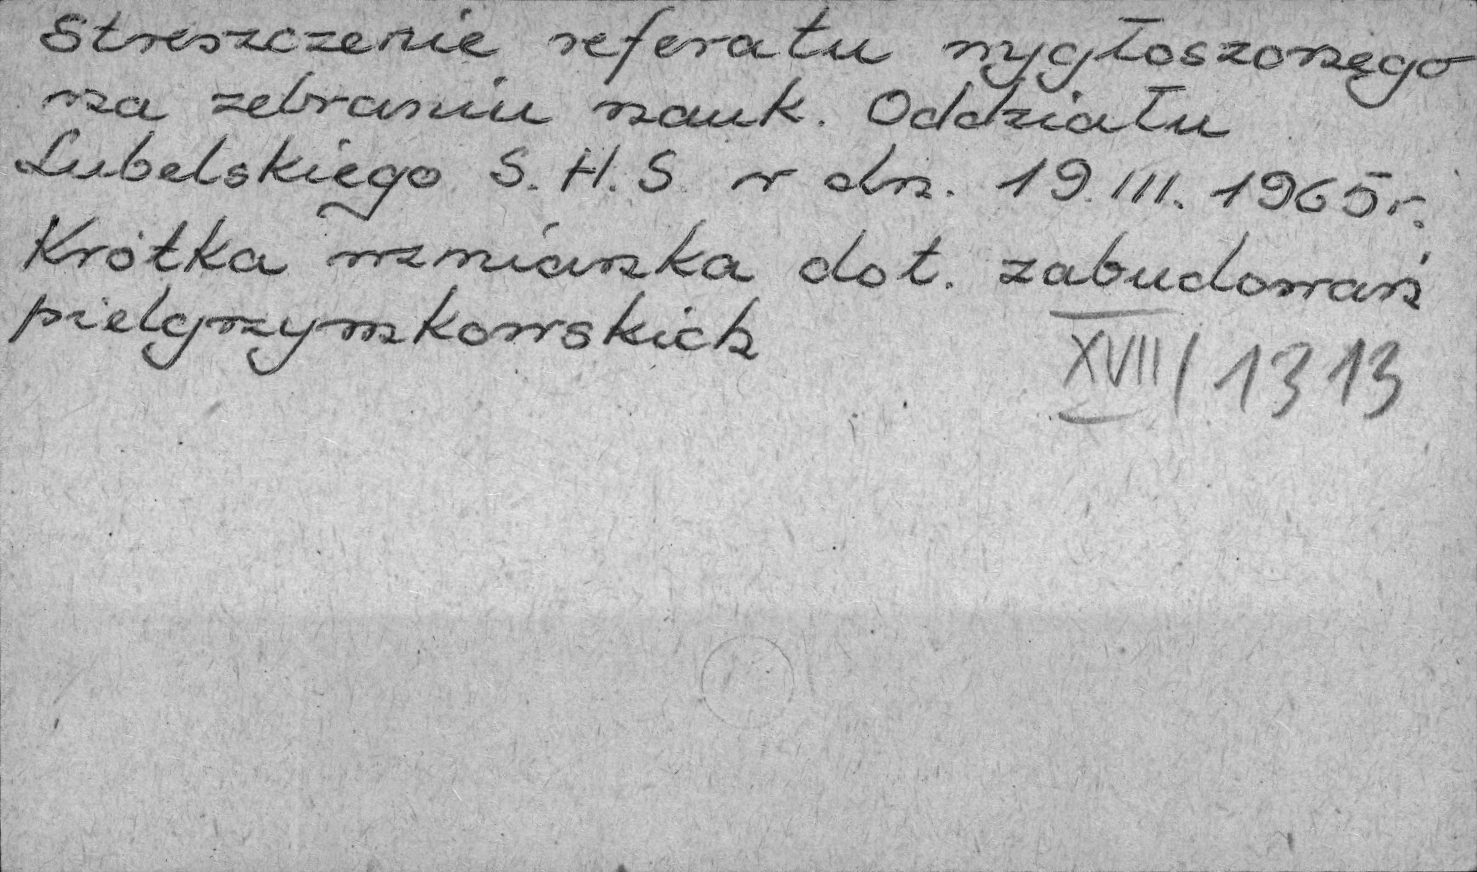 Streszczenie referatu wygłoszonego
na zebraniu nauk. Oddziału
Lubelskiego S.H.S w dn. 19.III.1965r.
Krótka wzmianka dot. zabudowań
pielgrzymkowskich
XVII/1313